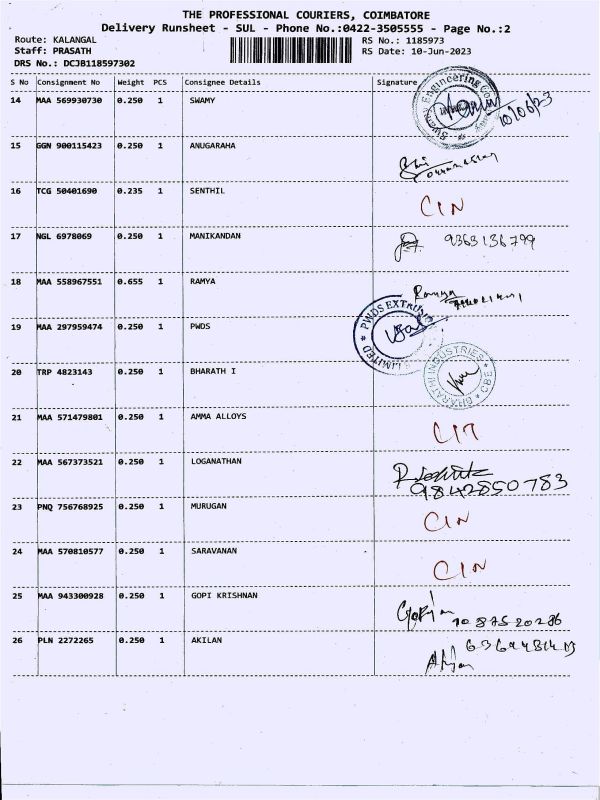 THE PROFESSIONAL COURIERS, COIMBATORE
Delivery Runsheet - SUL - Phone No.:0422-3505555 - Page No.:2
Route: KALANGAL RS No.: 1185973
Staff: PRASATH RS Date: 10-Jun-2023
DRS No.: DCJB118597302
S No Consignment No Weight PCS Consignee Details Signature
14 MAA 569930730 0.250 1 SWAMY 10/06/23
15 GGN 900115423 0.250 1 ANUGARAHA
16 TCG 50401690 0.235 1 SENTHIL CIN
17 NGL 6978069 0.250 1 MANIKANDAN 9363136799
18 MAA 558967551 0.655 1 RAMYA Ramya
19 MAA 297959474 0.250 1 PWDS PWDS EXTRUSION LIMITED
20 TRP 4823143 0.250 1 BHARATH I BHARATH INDUSTRIES CBE
21 MAA 571479801 0.250 1 AMMA ALLOYS
22 MAA 567373521 0.250 1 LOGANATHAN
9842850783
23 PNQ 756768925 0.250 1 MURUGAN CIN
24 MAA 570810577 0.250 1 SARAVANAN CIN
25 MAA 943300928 0.250 1 GOPI KRISHNAN
26 PLN 2272265 0.250 1 AKILAN